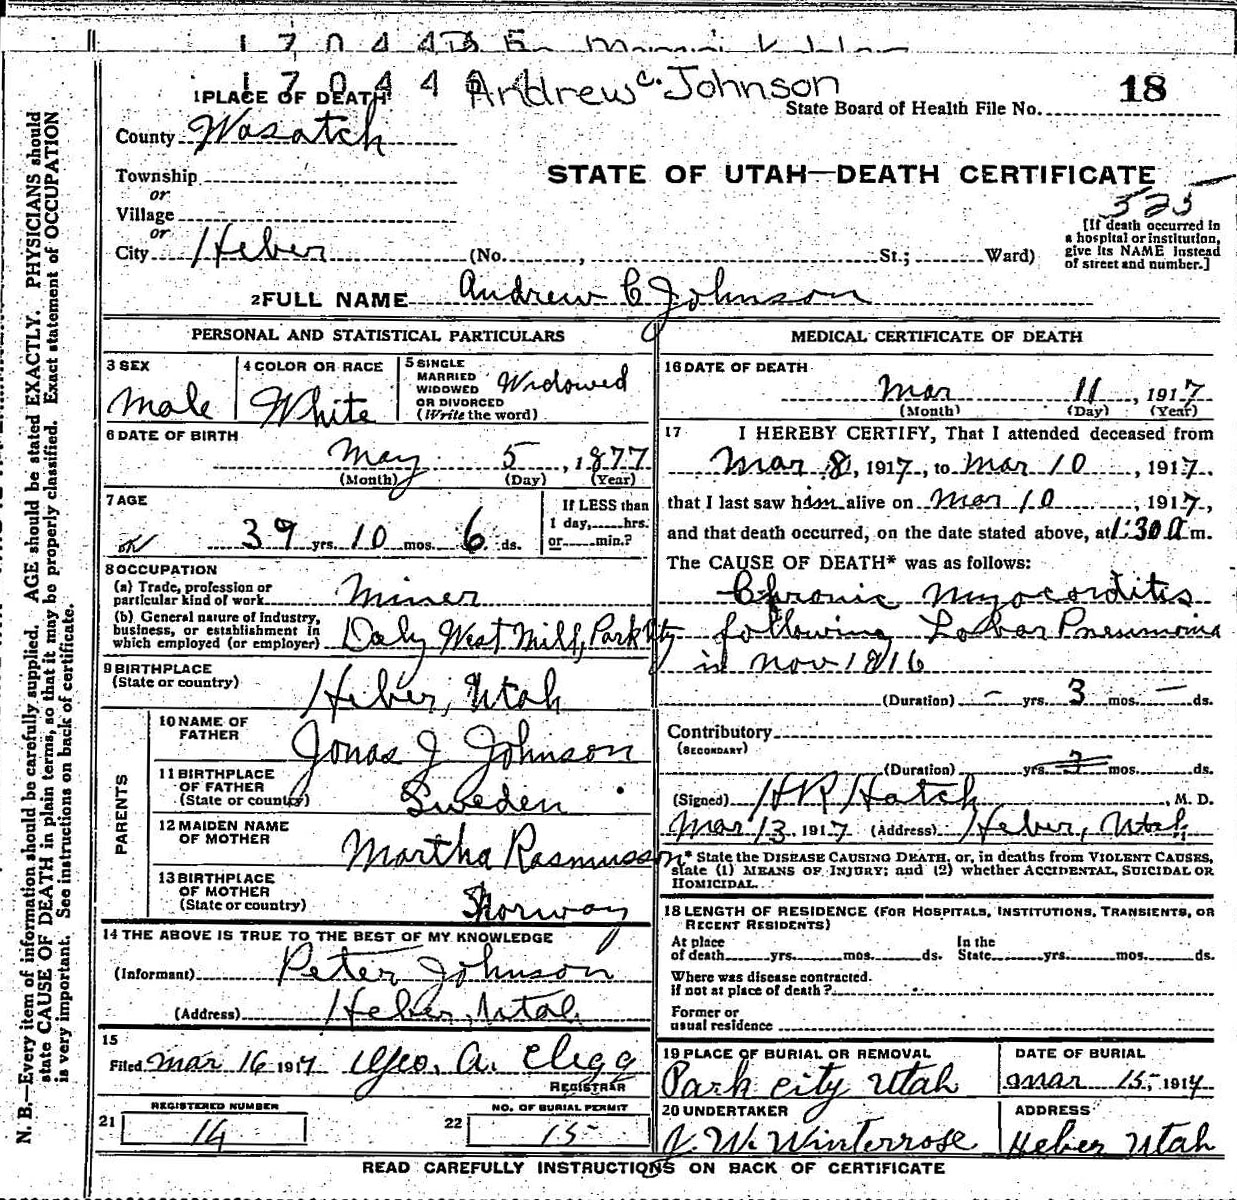 1 7 0 4 4
1 7 0 4 4 Andrew C. Johnson
18
1 PLACE OF DEATH
State Board of Health File No.
County Wasatch
Township
STATE OF UTAH—DEATH CERTIFICATE
or
Village
525
or
City Heber (No. , St.; Ward)
[If death occurred in a hospital or institution, give its NAME instead of street and number.]
2 FULL NAME Andrew C Johnson
PERSONAL AND STATISTICAL PARTICULARS
3 SEX
Male
4 COLOR OR RACE
White
5 SINGLE
MARRIED
WIDOWED
OR DIVORCED
(Write the word)
Widowed
6 DATE OF BIRTH
May 5, 1877
(Month) (Day) (Year)
7 AGE
39 yrs. 10 mos. 6 ds.
If LESS than
1 day, hrs.
or min.?
8 OCCUPATION
(a) Trade, profession or
particular kind of work Miner
(b) General nature of industry,
business, or establishment in
which employed (or employer) Daly West Mill, Park City
9 BIRTHPLACE
(State or country)
Heber, Utah
PARENTS
10 NAME OF
FATHER
Jonas J Johnson
11 BIRTHPLACE
OF FATHER
(State or country)
Sweden
12 MAIDEN NAME
OF MOTHER
Martha Rasmusson
13 BIRTHPLACE
OF MOTHER
(State or country)
Norway
14 THE ABOVE IS TRUE TO THE BEST OF MY KNOWLEDGE
(Informant) Peter Johnson
(Address) Heber, Utah
15
Filed Mar 16 1917 Geo. A. Clegg
REGISTRAR
REGISTERED NUMBER
21 14
NO. OF BURIAL PERMIT
22 15
MEDICAL CERTIFICATE OF DEATH
16 DATE OF DEATH
Mar 11, 1917
(Month) (Day) (Year)
17 I HEREBY CERTIFY, That I attended deceased from
Mar 8, 1917, to Mar 10, 1917.
that I last saw him alive on Mar 10, 1917,
and that death occurred, on the date stated above, at 1:30 a m.
The CAUSE OF DEATH* was as follows:
Chronic Myocorditis
following Lobar Pneumonia
in Nov 1816
(Duration) – yrs. 3 mos. – ds.
Contributory
(SECONDARY)
(Duration) yrs. 3 mos. ds.
(Signed) H R Hatch, M. D.
Mar 13, 1917 (Address) Heber, Utah
* State the DISEASE CAUSING DEATH, or, in deaths from VIOLENT CAUSES,
state (1) MEANS OF INJURY; and (2) whether ACCIDENTAL, SUICIDAL OR
HOMICIDAL.
18 LENGTH OF RESIDENCE (FOR HOSPITALS, INSTITUTIONS, TRANSIENTS, OR
RECENT RESIDENTS)
At place
of death yrs. mos. ds.
In the
State yrs. mos. ds.
Where was disease contracted.
if not at place of death?
Former or
usual residence
19 PLACE OF BURIAL OR REMOVAL
Park City Utah
DATE OF BURIAL
Mar 15, 1917
20 UNDERTAKER
J. W. Winterrose
ADDRESS
Heber Utah
READ CAREFULLY INSTRUCTIONS ON BACK OF CERTIFICATE
N. B.—Every item of information should be carefully supplied. AGE should be stated EXACTLY. PHYSICIANS should
state CAUSE OF DEATH in plain terms, so that it may be properly classified. Exact statement of OCCUPATION
is very important. See instructions on back of certificate.